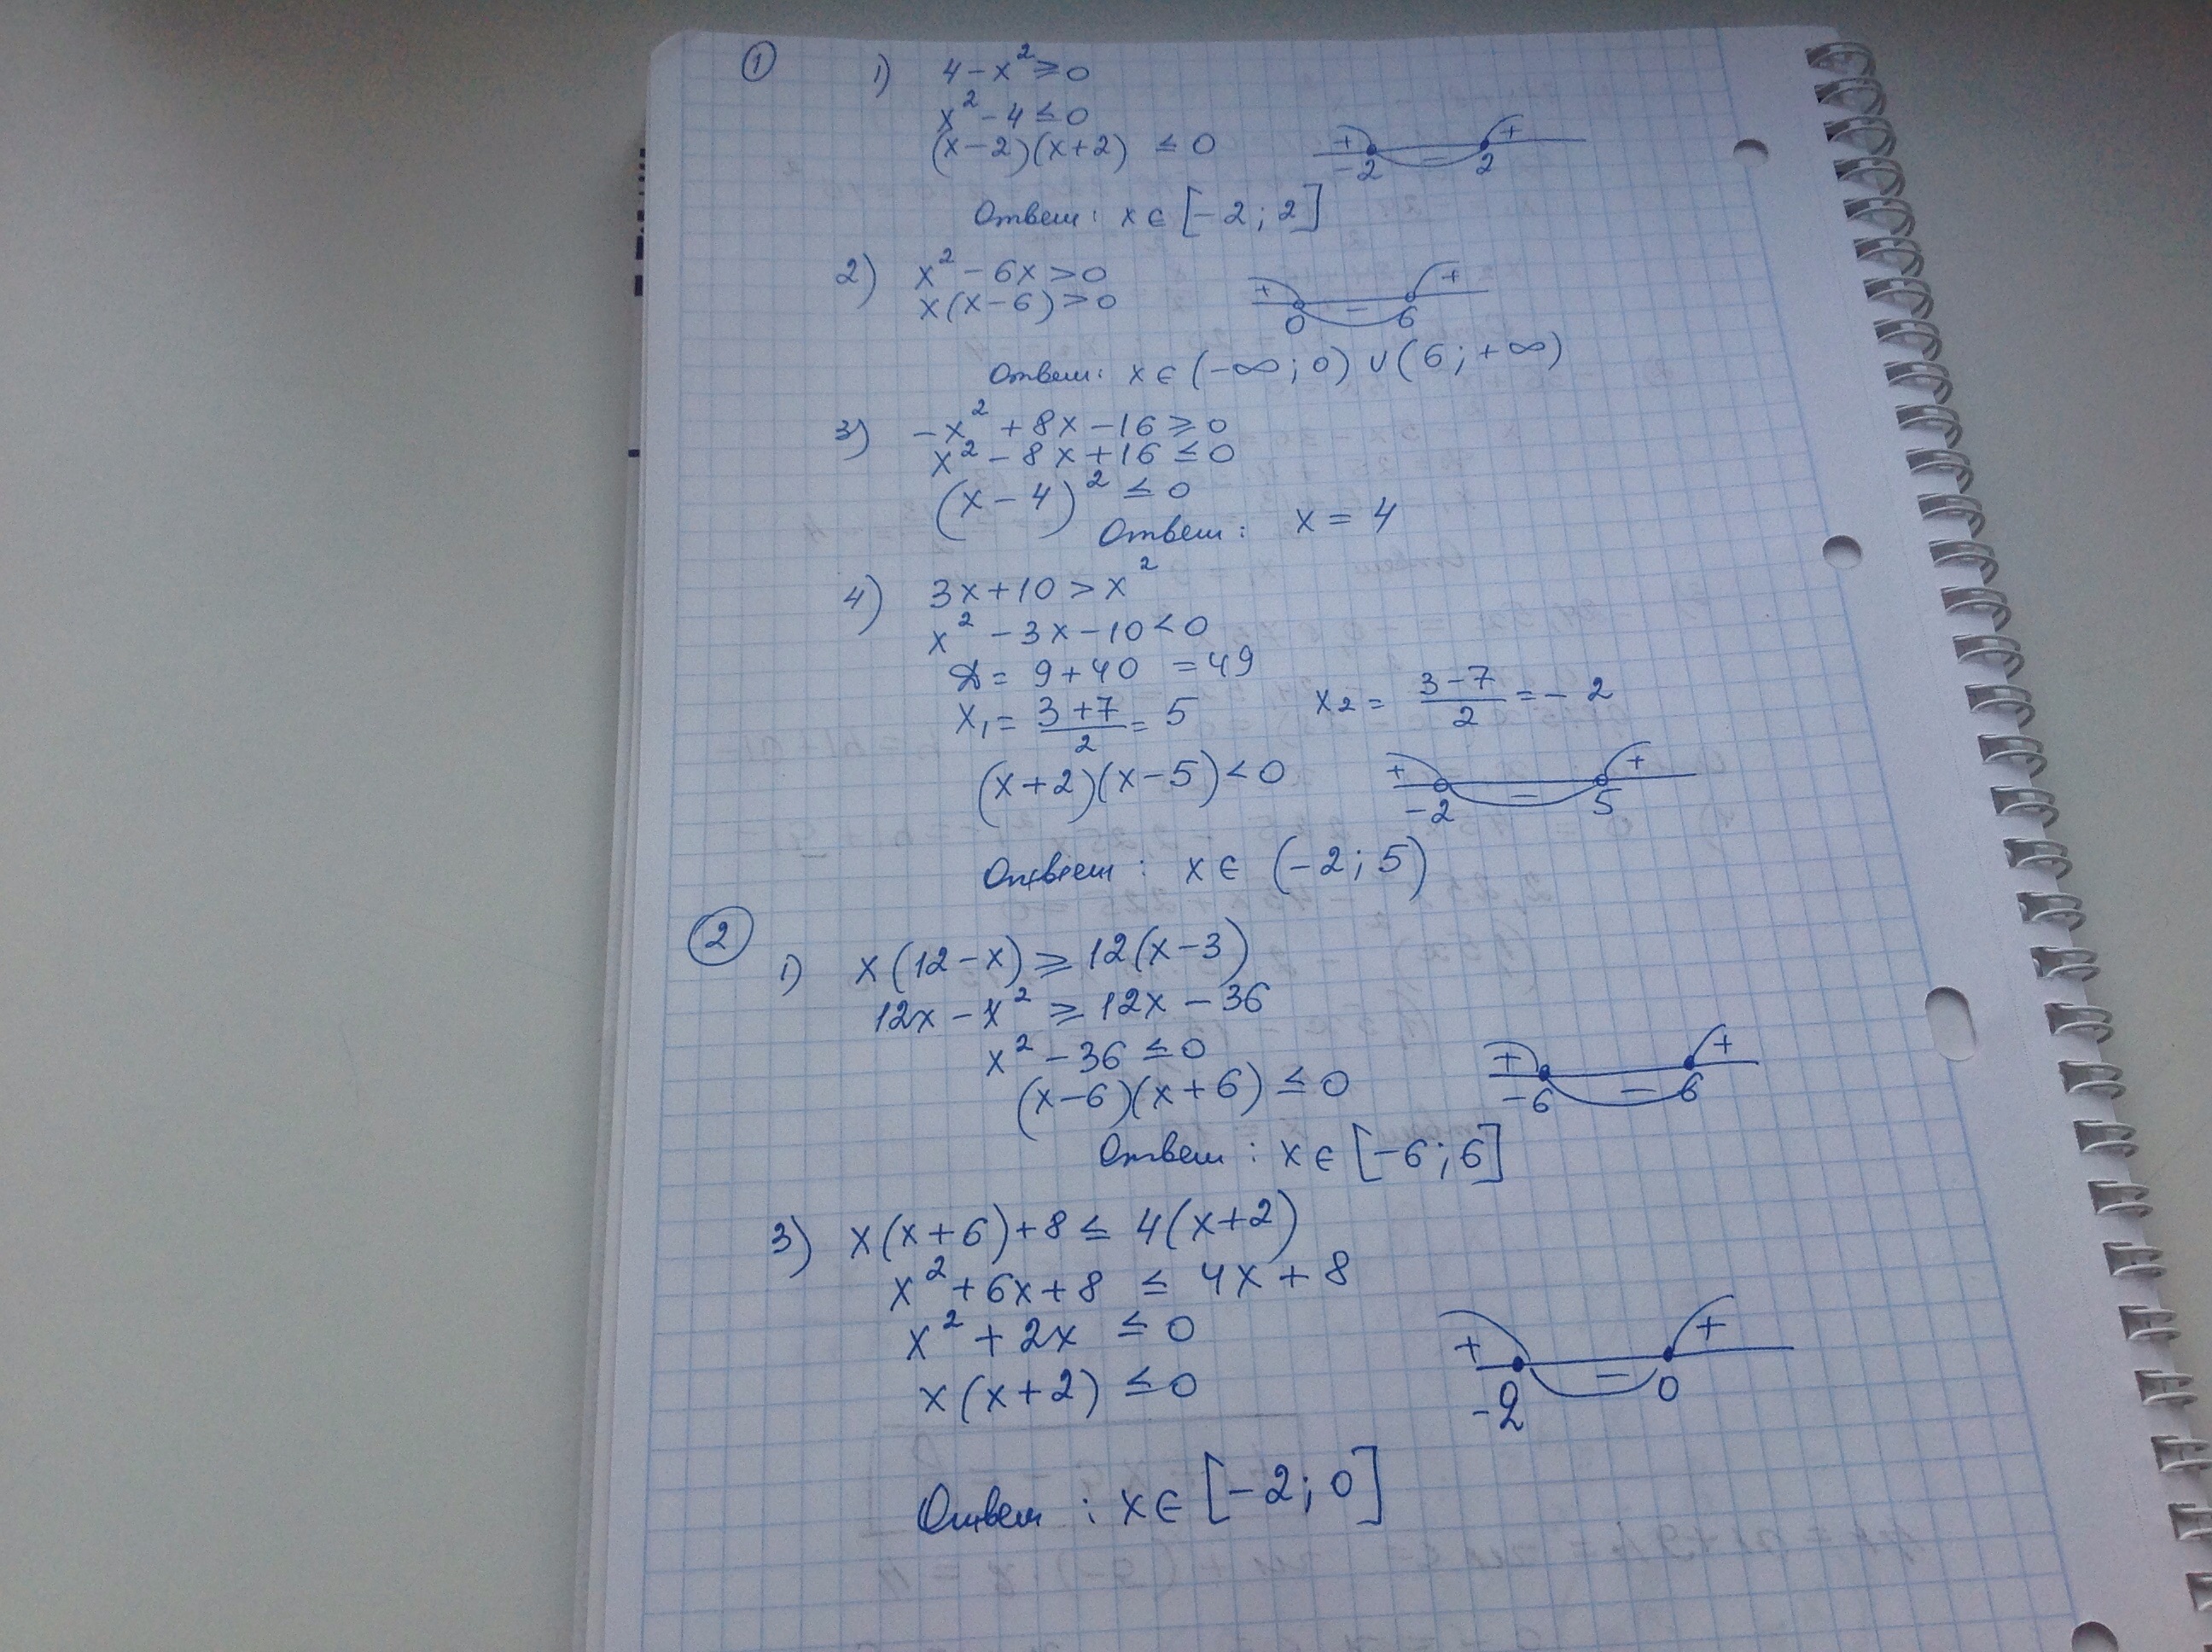 ① 1) 4 - x² ≥ 0
x² - 4 ≤ 0
(x-2)(x+2) ≤ 0
+ - +
-2 2
Ответ: x ∈ [-2; 2]
2) x² - 6x > 0
x(x-6) > 0
+ - +
0 6
Ответ: x ∈ (-∞; 0) ∪ (6; +∞)
3) -x² + 8x - 16 ≥ 0
x² - 8x + 16 ≤ 0
(x-4)² ≤ 0
Ответ: x = 4
4) 3x + 10 > x²
x² - 3x - 10 < 0
D = 9 + 40 = 49
x₁ = (3+7)/2 = 5 x₂ = (3-7)/2 = -2
(x+2)(x-5) < 0
+ - +
-2 5
Ответ: x ∈ (-2; 5)
② 1) x(12-x) ≥ 12(x-3)
12x - x² ≥ 12x - 36
x² - 36 ≤ 0
(x-6)(x+6) ≤ 0
+ - +
-6 6
Ответ: x ∈ [-6; 6]
3) x(x+6)+8 ≤ 4(x+2)
x² + 6x + 8 ≤ 4x + 8
x² + 2x ≤ 0
x(x+2) ≤ 0
+ - +
-2 0
Ответ: x ∈ [-2; 0]